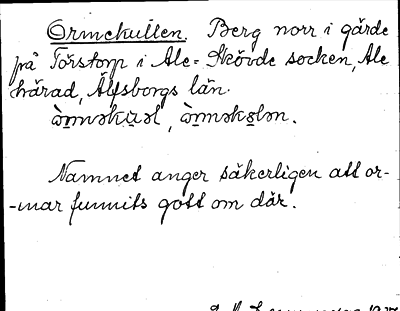 Ormekullen. Berg norr i gärde
på Torstorp i Ale-Skövde socken, Ale
härad, Älfsborgs län.
Namnet anger säkerligen att or-
-mar funnits gott om där.